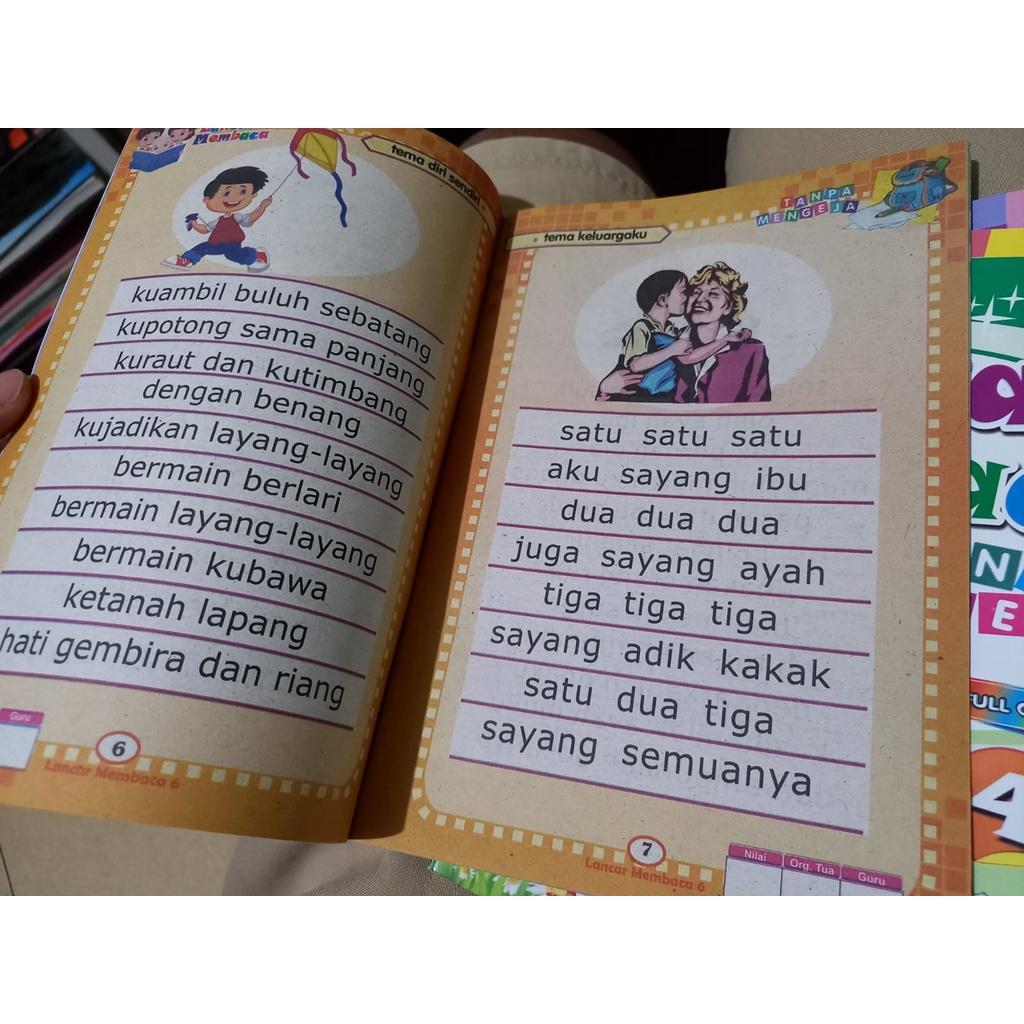 Membaca
tema diri sendiri
kuambil buluh sebatang
kupotong sama panjang
kuraut dan kutimbang
dengan benang
kujadikan layang-layang
bermain berlari
bermain layang-layang
bermain kubawa
ketanah lapang
hati gembira dan riang
Guru
6
Lancar Membaca 6
TANPA
MENGEJA
tema keluargaku
satu satu satu
aku sayang ibu
dua dua dua
juga sayang ayah
tiga tiga tiga
sayang adik kakak
satu dua tiga
sayang semuanya
7
Lancar Membaca 6
Nilai Org. Tua Guru
FULL
4